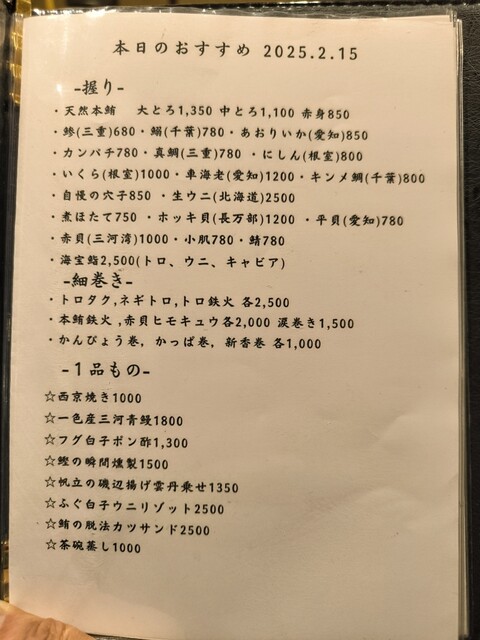 本日のおすすめ 2025.2.15
-握り-
・天然本鮪 大とろ1,350 中とろ1,100 赤身850
・鯵(三重)680・鰯(千葉)780・あおりいか(愛知)850
・カンパチ780・真鯛(三重)780 ・にしん(根室)800
・いくら(根室)1000・車海老(愛知)1200・キンメ鯛(千葉)800
・自慢の穴子850 ・生ウニ(北海道)2500
・煮ほたて750 ・ホッキ貝(長万部)1200 ・平貝(愛知)780
・赤貝(三河湾)1000・小肌780・鯖780
・海宝鮨2,500(トロ、ウニ、キャビア)
-細巻き-
・トロタク,ネギトロ,トロ鉄火 各2,500
・本鮪鉄火 ,赤貝ヒモキュウ各2,000 涙巻き1,500
・かんぴょう巻, かっぱ巻, 新香巻 各1,000
-1品もの-
☆西京焼き1000
☆一色産三河青鰻1800
☆フグ白子ポン酢1,300
☆鰹の瞬間燻製1500
☆帆立の磯辺揚げ雲丹乗せ1350
☆ふぐ白子ウニリゾット2500
☆鮪の脱法カツサンド2500
☆茶碗蒸し1000